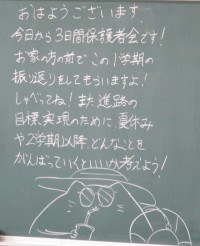 おはようございます.
今日から3日間保護者会です!
お家の方の前で この1学期の
振り返りをしてもらいますよ!
しゃべってね! また進路の
目標実現のために、夏休み
や2学期以降、どんなことを
がんばっていくといいか考えよう!